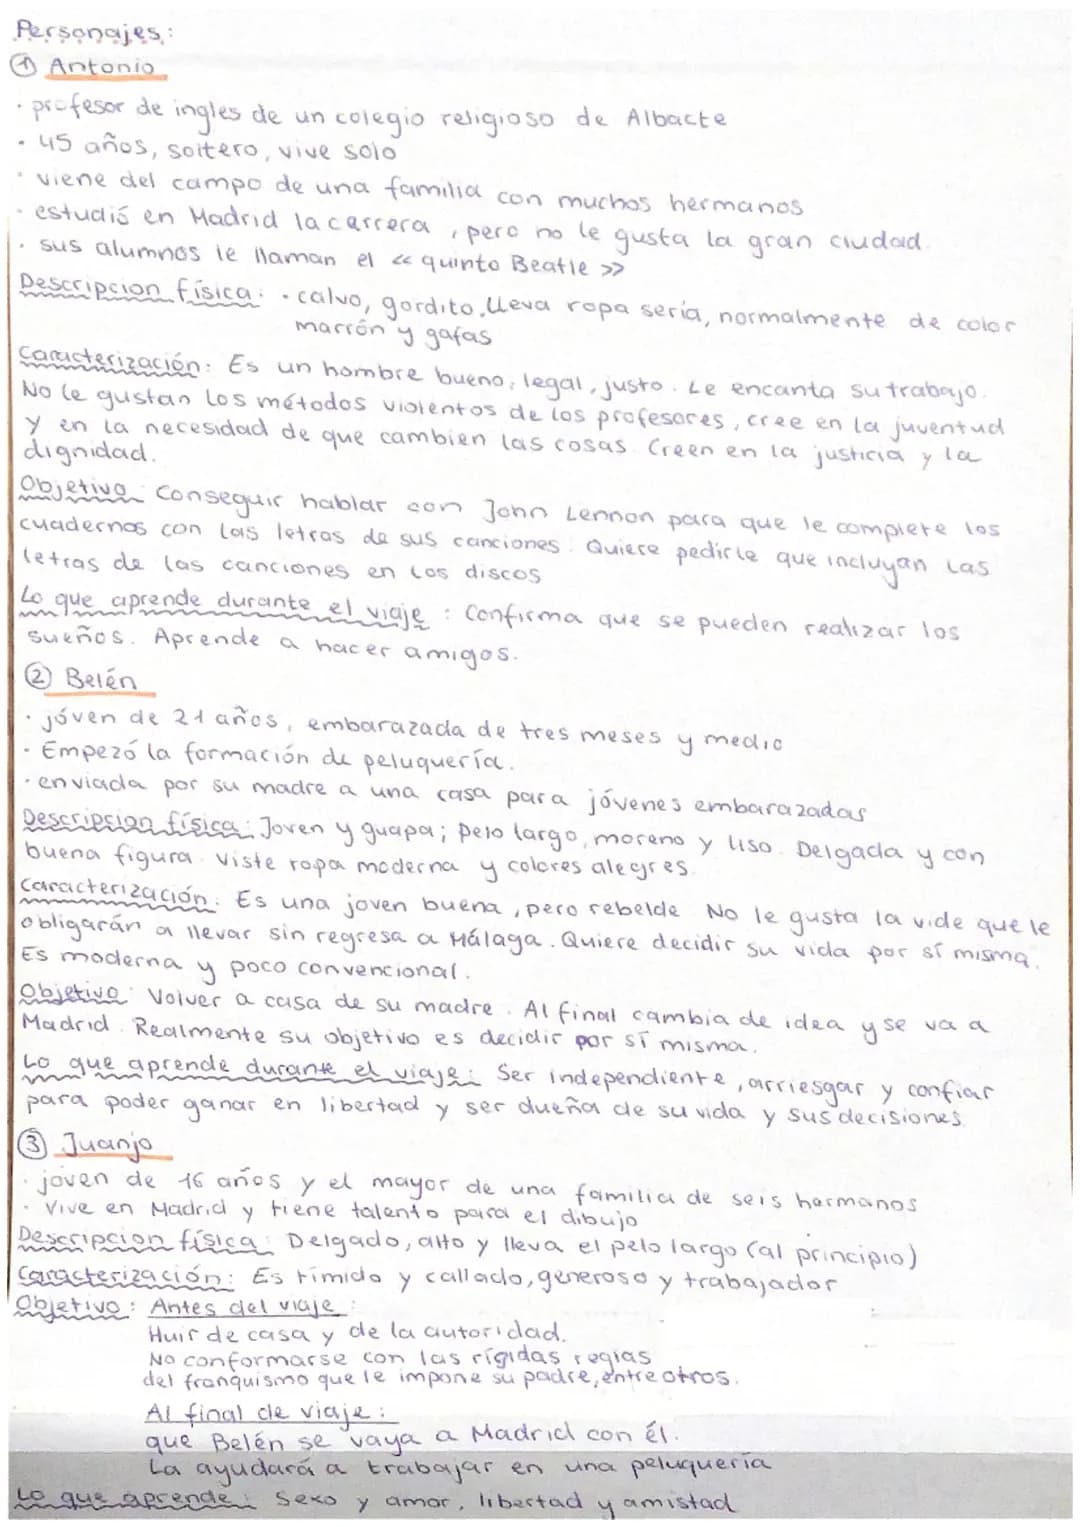 Personajes:
① Antonio
· profesor de ingles de un colegio religioso de Albacte
· 45 años, soltero, vive solo
· viene del campo de una familia con muchos hermanos
· estudió en Madrid la carrera, pero no le gusta la gran ciudad.
· sus alumnos le llaman el << quinto Beatle >>
Descripcion física: · calvo, gordito, lleva ropa seria, normalmente de color
marrón y gafas
Caracterización: Es un hombre bueno, legal, justo. Le encanta su trabajo.
No le gustan los métodos violentos de los profesores, cree en la juventud
y en la necesidad de que cambien las cosas. Creen en la justicia y la
dignidad.
Objetivo: Conseguir hablar con John Lennon para que le complete los
cuadernos con las letras de sus canciones. Quiere pedirle que incluyan las
letras de las canciones en los discos
Lo que aprende durante el viaje: Confirma que se pueden realizar los
sueños. Aprende a hacer amigos.
② Belén
· jóven de 21 años, embarazada de tres meses y medio
· Empezó la formación de peluquería.
· enviada por su madre a una casa para jóvenes embarazadas
Descripcion física: Joven y guapa; pelo largo, moreno y liso. Delgada y con
buena figura. Viste ropa moderna y colores alegres.
Caracterización: Es una joven buena, pero rebelde. No le gusta la vide que le
obligarán a llevar sin regresa a Málaga. Quiere decidir su vida por sí misma.
Es moderna y poco convencional.
Objetivo: Volver a casa de su madre. Al final cambia de idea y se va a
Madrid. Realmente su objetivo es decidir por sí misma.
Lo que aprende durante el viaje: Ser independiente, arriesgar y confiar
para poder ganar en libertad y ser dueña de su vida y sus decisiones.
③ Juanjo
· joven de 16 años y el mayor de una familia de seis hermanos
· Vive en Madrid y tiene talento para el dibujo
Descripcion física: Delgado, alto y lleva el pelo largo (al principio)
Caracterización: Es tímido y callado, generoso y trabajador
Objetivo: Antes del viaje:
Huir de casa y de la autoridad.
No conformarse con las rígidas reglas
del franquismo que le impone su padre, entre otros.
Al final de viaje:
que Belén se vaya a Madrid con él.
La ayudará a trabajar en una peluquería
Lo que aprende: Sexo y amor, libertad y amistad